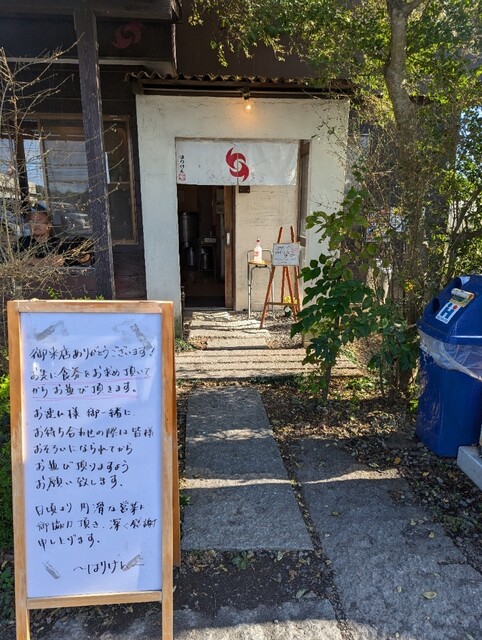 御来店ありがとうございます!
お先に食券をお求め頂いて
からお並び頂きます。
お連れ様 御一緒に
お待ち合わせの際は皆様
おそろいになられてから
お並び頂けますよう
お願い致します。
日頃より円滑な営業に
御協力頂き、深く感謝
申し上げます。
〜はりけん〜